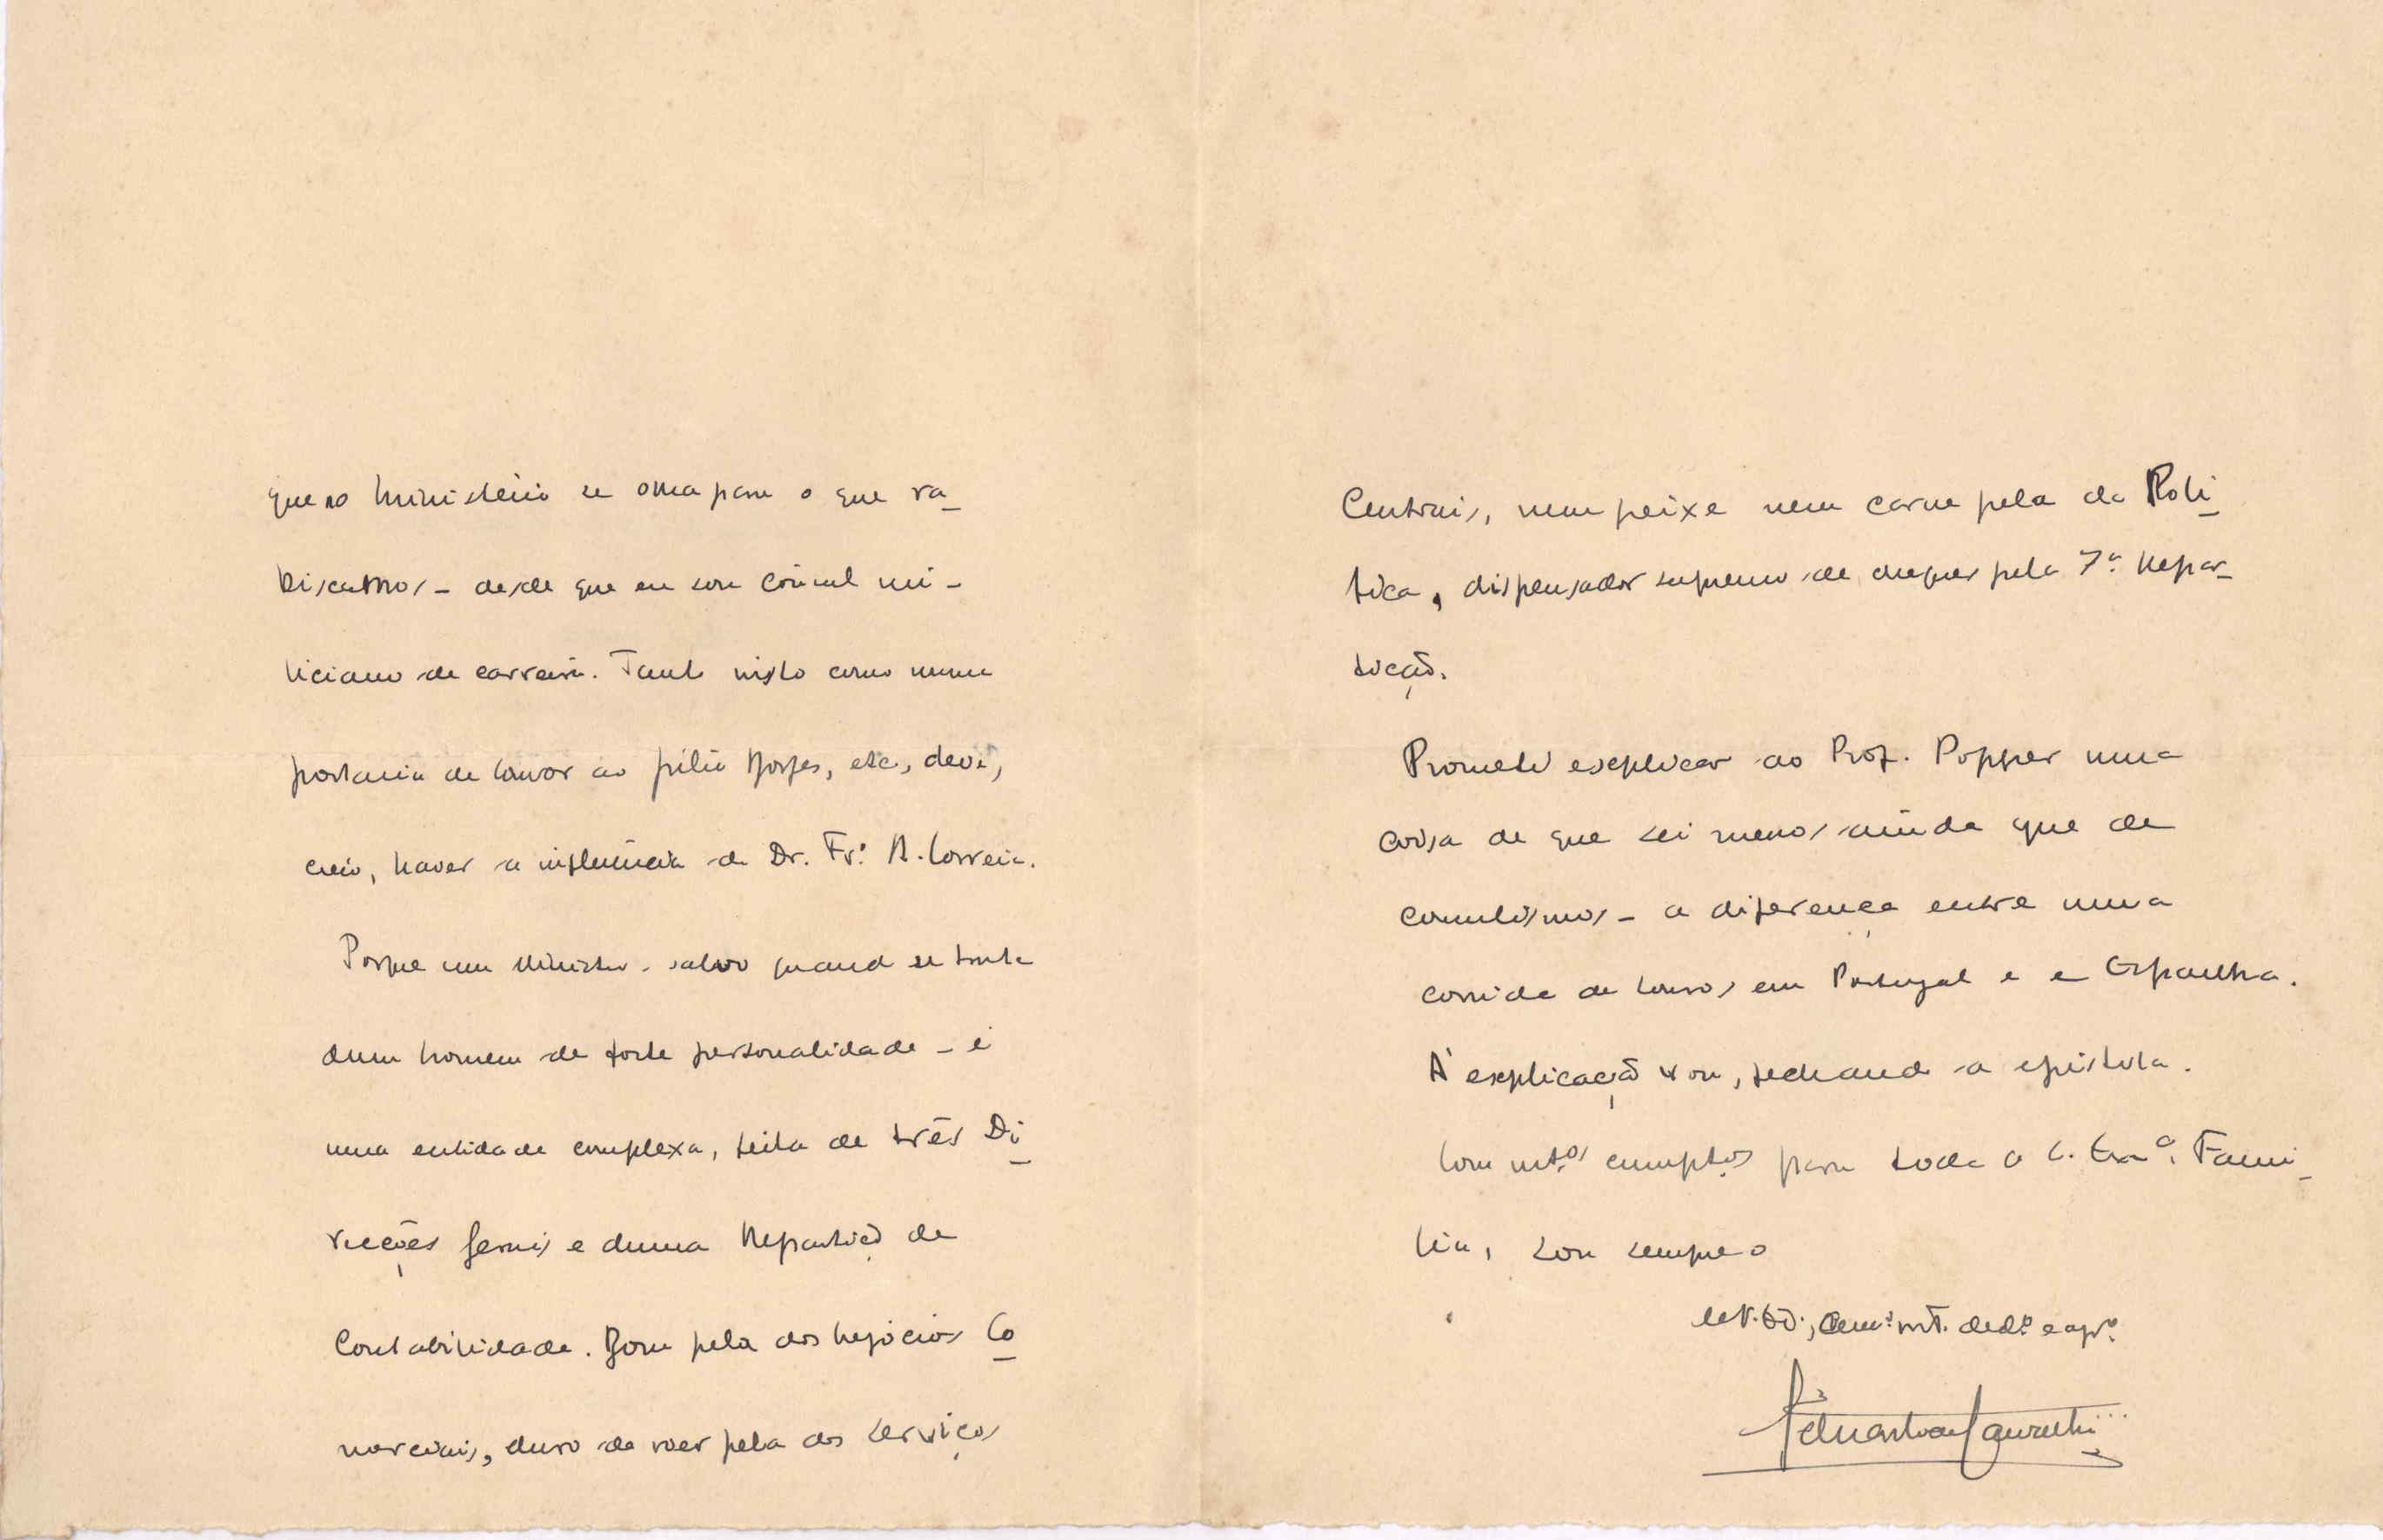 que no Ministério se olha para o que ra-
biscamos - desde que eu sou cônsul mi-
liciano de carreira. Tanto nisto como numa
portaria de louvor ao Borges, etc., deve,
creio, haver a influência do Dr. Fr.º A. Correia.
Porque um Ministro - salvo quando se trata
dum homem de forte personalidade - é
uma entidade complexa, feita de três Di-
recções Gerais e duma Repartição de
Contabilidade. Bom pela dos Negócios Co-
merciais, duro de roer pela dos Serviços
Centrais, nem peixe nem carne pela da Poli-
tica, dispensador supremo de cheques pela 7.ª Repar-
tição.
Prometi explicar ao Prof. Popper uma
coisa de que sei menos ainda que de
- a diferença entre uma
corrida de touros em Portugal e em Espanha.
À explicação vou, fechando a epístola.
Com mt.os cumpt.os para toda a S. Exm.ª Famí-
lia, sou sempre o
de V. Ex.ª, mt. ded.º e agr.º